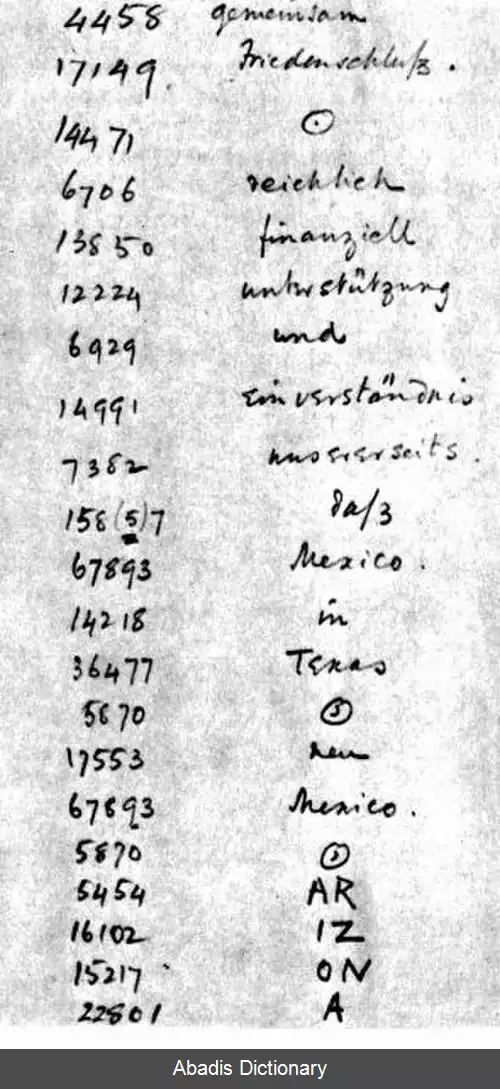 4458 gemeinsam
17149 Friedenschluß.
14471 ⊙
6706 reichlich
13850 finanziell
12224 unterstützung
6929 und
14991 Einverständnis
7382 unsererseits.
158(5)7 daß
67893 Mexico.
14218 in
36477 Texas
5870 ⊙
17553 neu
67893 Mexico.
5870 ⊙
5454 AR
16102 IZ
15217 ON
22801 A
Abadis Dictionary